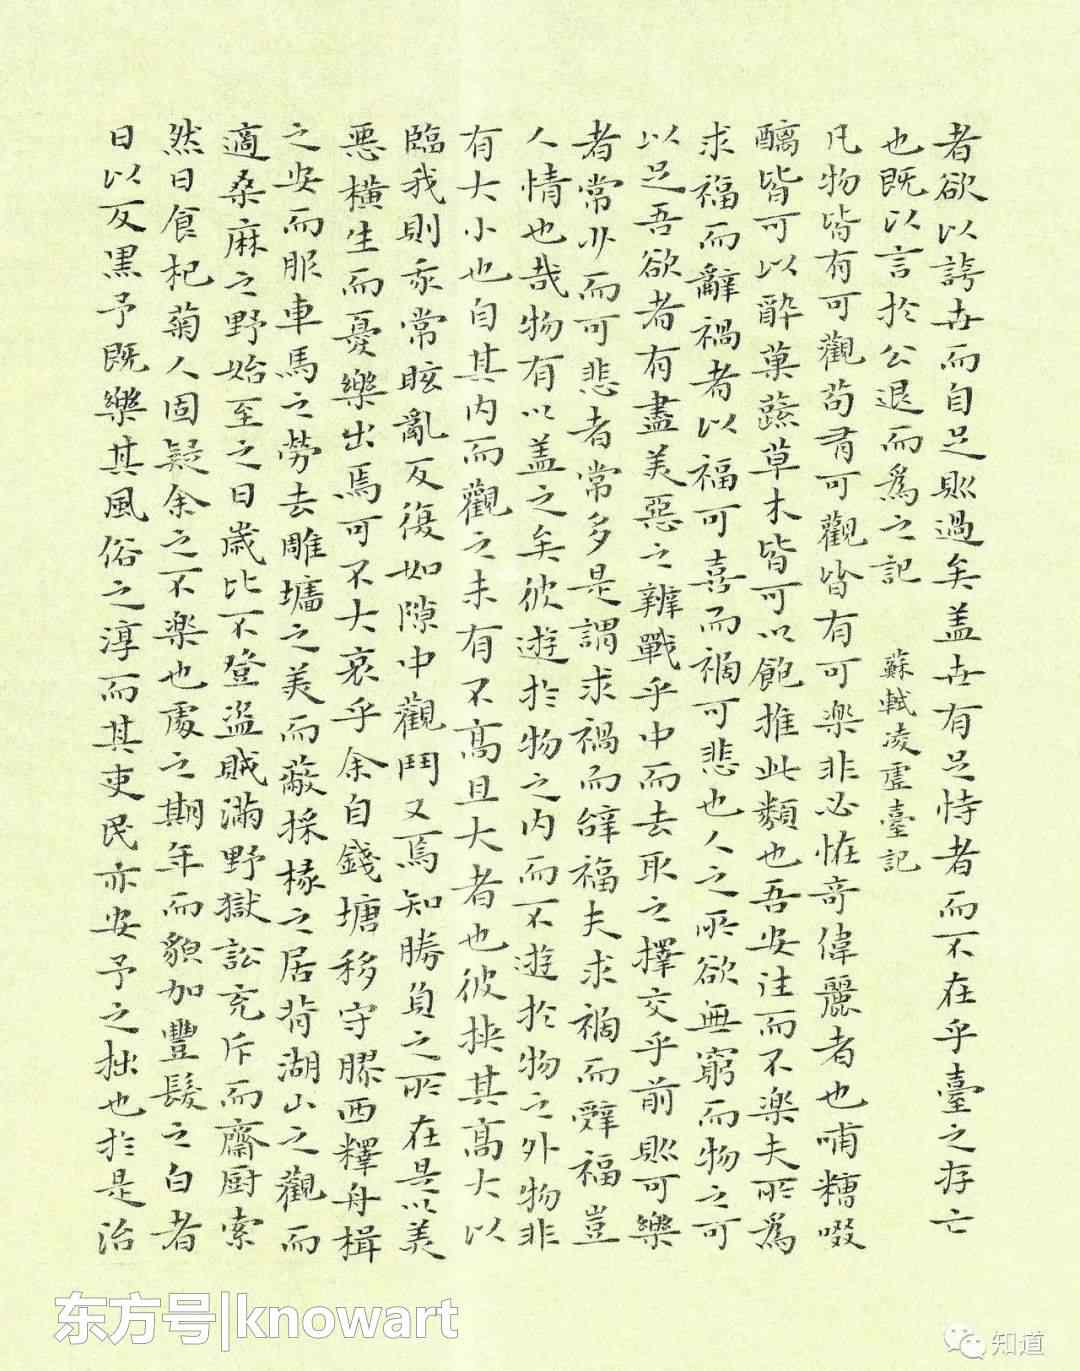 者欲以誇世而自足則過矣盖世有足恃者而不在乎臺之存亡
也既以言於公退而爲之記 蘇軾凌虛臺記
凡物皆有可觀苟有可觀皆有可樂非必恠奇偉麗者也哺糟啜
醨皆可以醉菓蔬草木皆可以飽推此類也吾安往而不樂夫所爲
求福而辭禍者以福可喜而禍可悲也人之所欲無窮而物之可
以足吾欲者有盡美惡之辨戰乎中而去取之擇交乎前則可樂
者常少而可悲者常多是謂求禍而辭福夫求禍而辭福豈
人情也哉物有以盖之矣彼遊於物之内而不遊於物之外物非
有大小也自其内而觀之未有不高且大者也彼挾其高大以
臨我則我常眩亂反復如隙中觀鬥又焉知勝負之所在是以美
惡橫生而憂樂出焉可不大哀乎余自錢塘移守膠西釋舟楫
之安而服車馬之勞去雕墻之美而蔽採椽之居背湖山之觀而
適桑麻之野始至之日歲比不登盜賊滿野獄訟充斥而齋厨索
然日食杞菊人固疑余之不樂也處之期年而貌加豐髮之白者
日以反黑予既樂其風俗之淳而其吏民亦安予之拙也於是治
东方号|knowart
知道